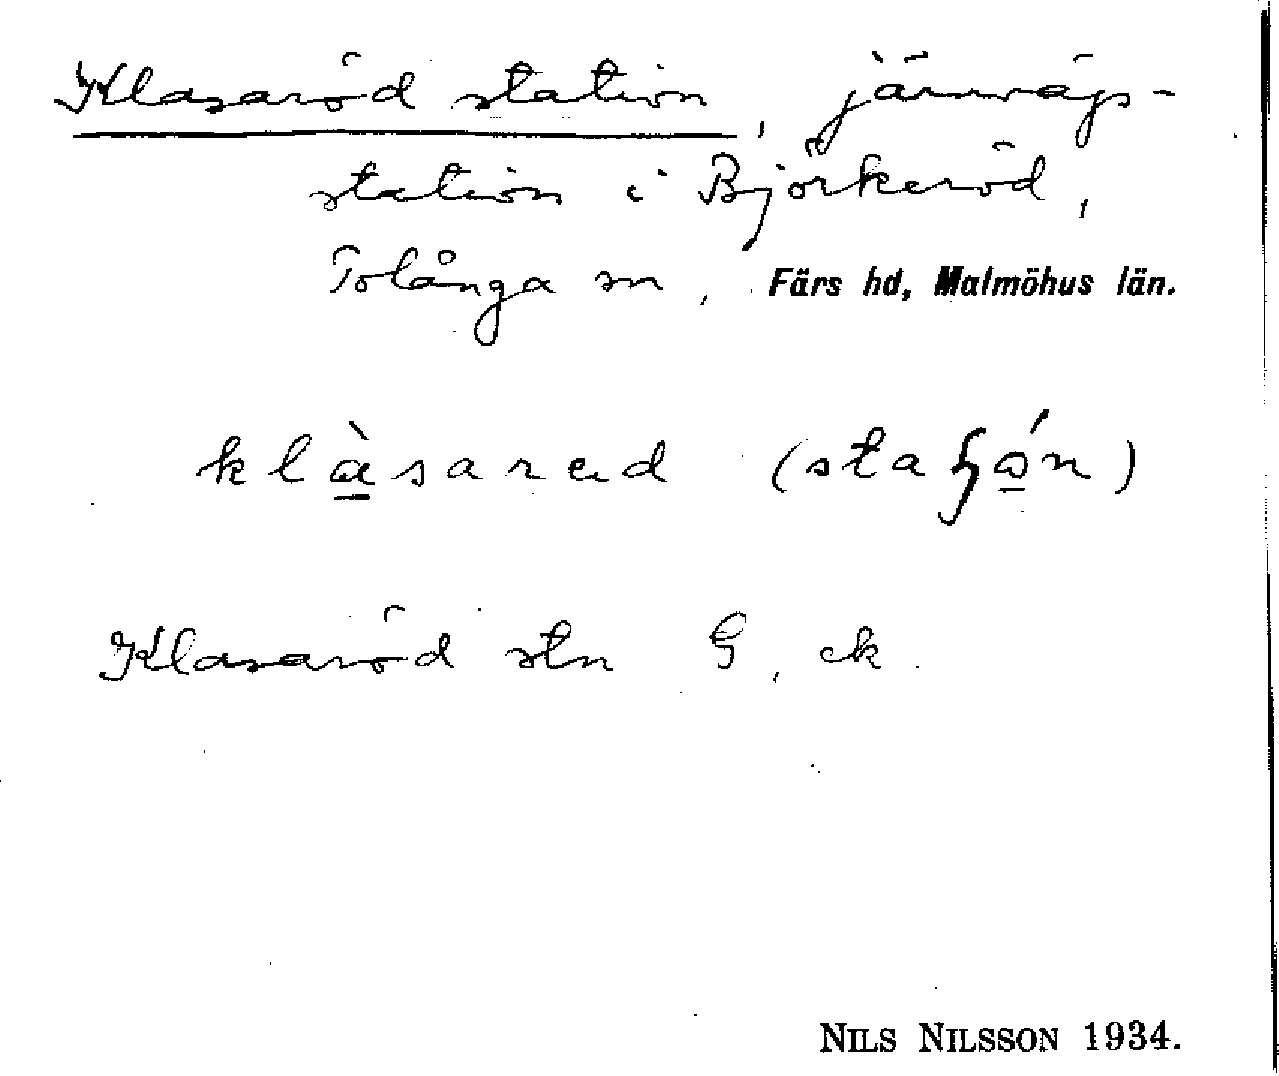 Klasaröd station, järnvägs-
station i Björkeröd,
Tolånga sn, Färs hd, Malmöhus län.
klàsarød (staʃón)
Klasaröd stn G, ek.
NILS NILSSON 1934.